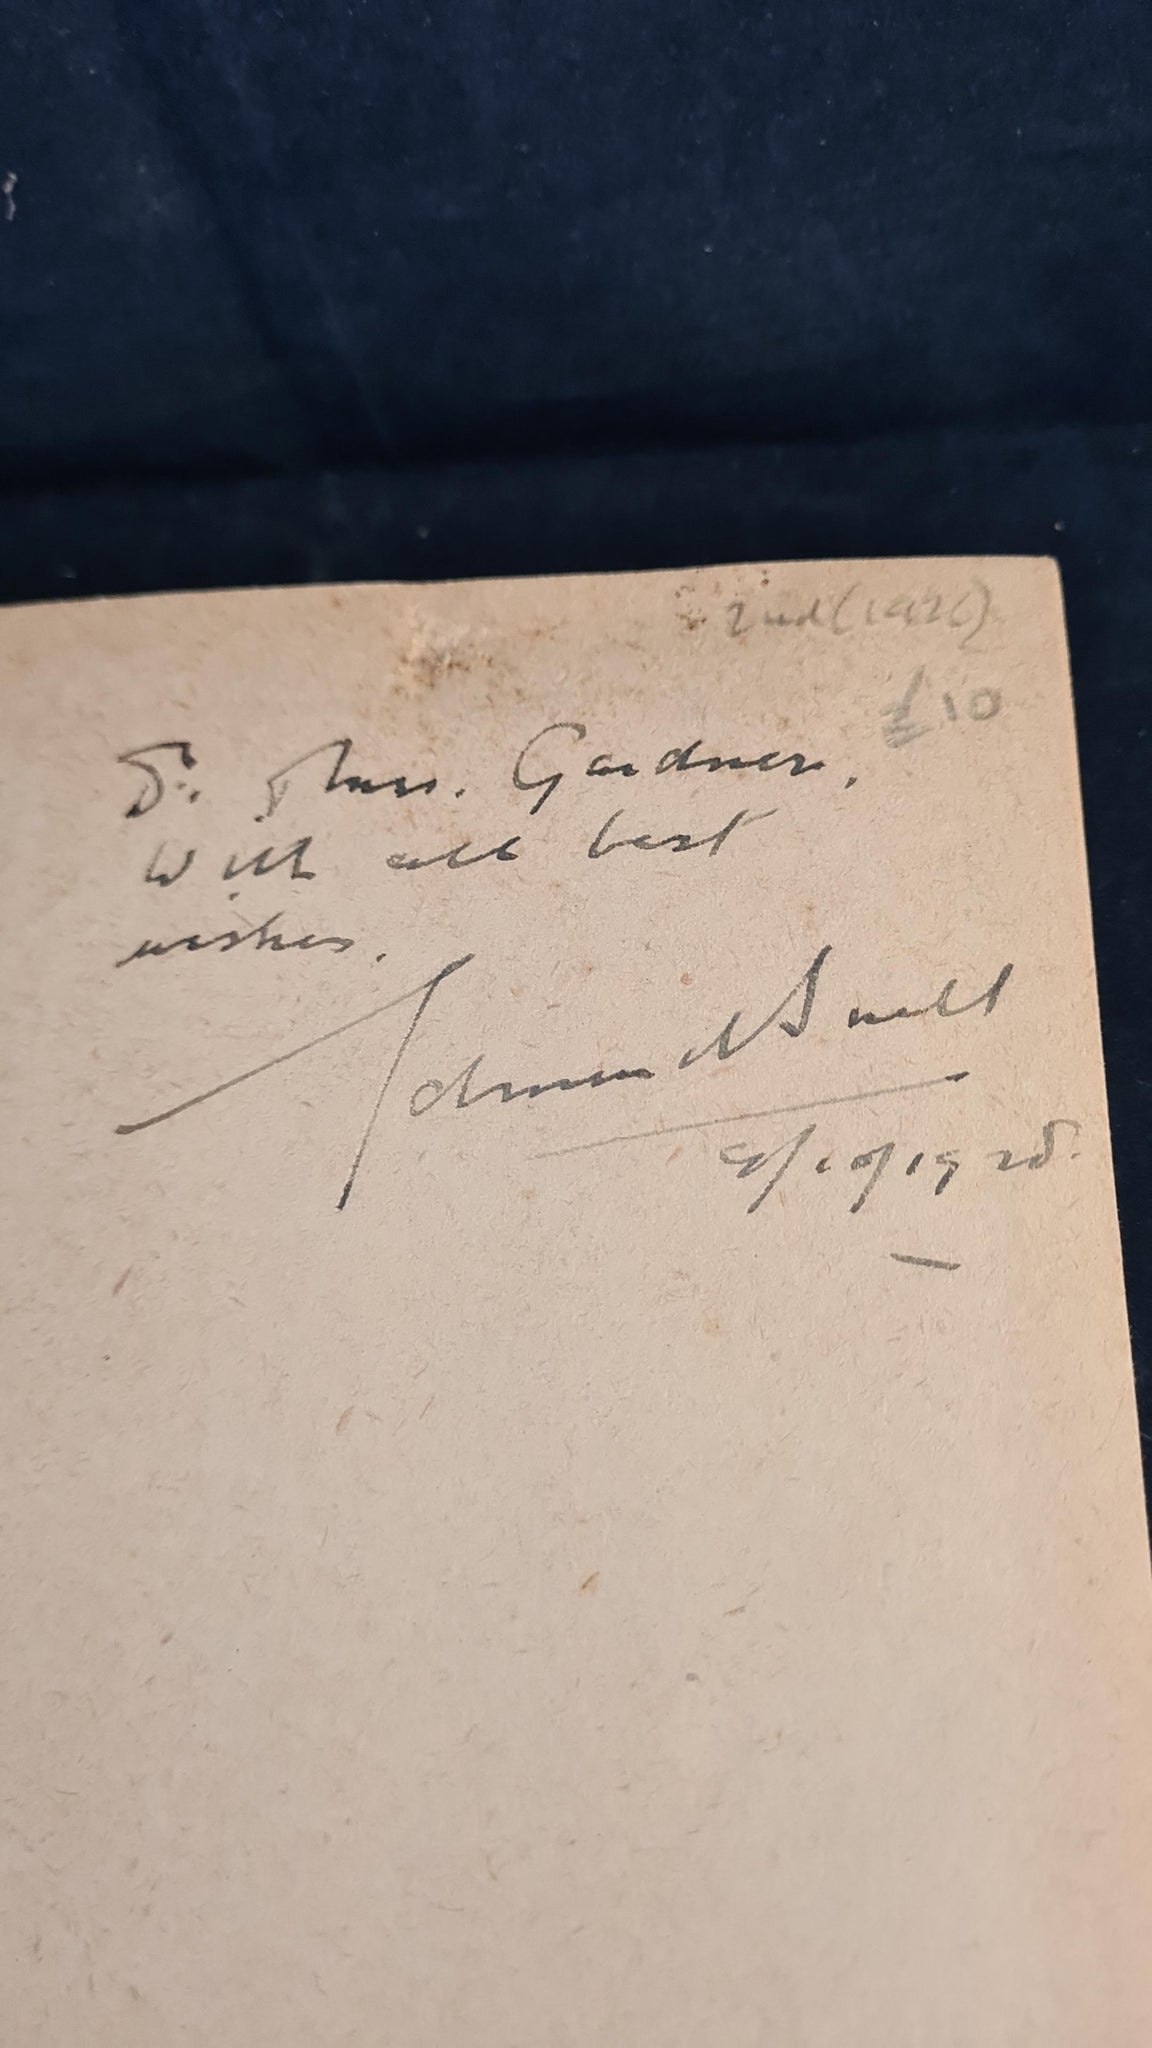 2nd (1926)
£10
Dr. & Mrs. Gardner,
With all best
wishes.
Edmund Snell
9/10/1928.